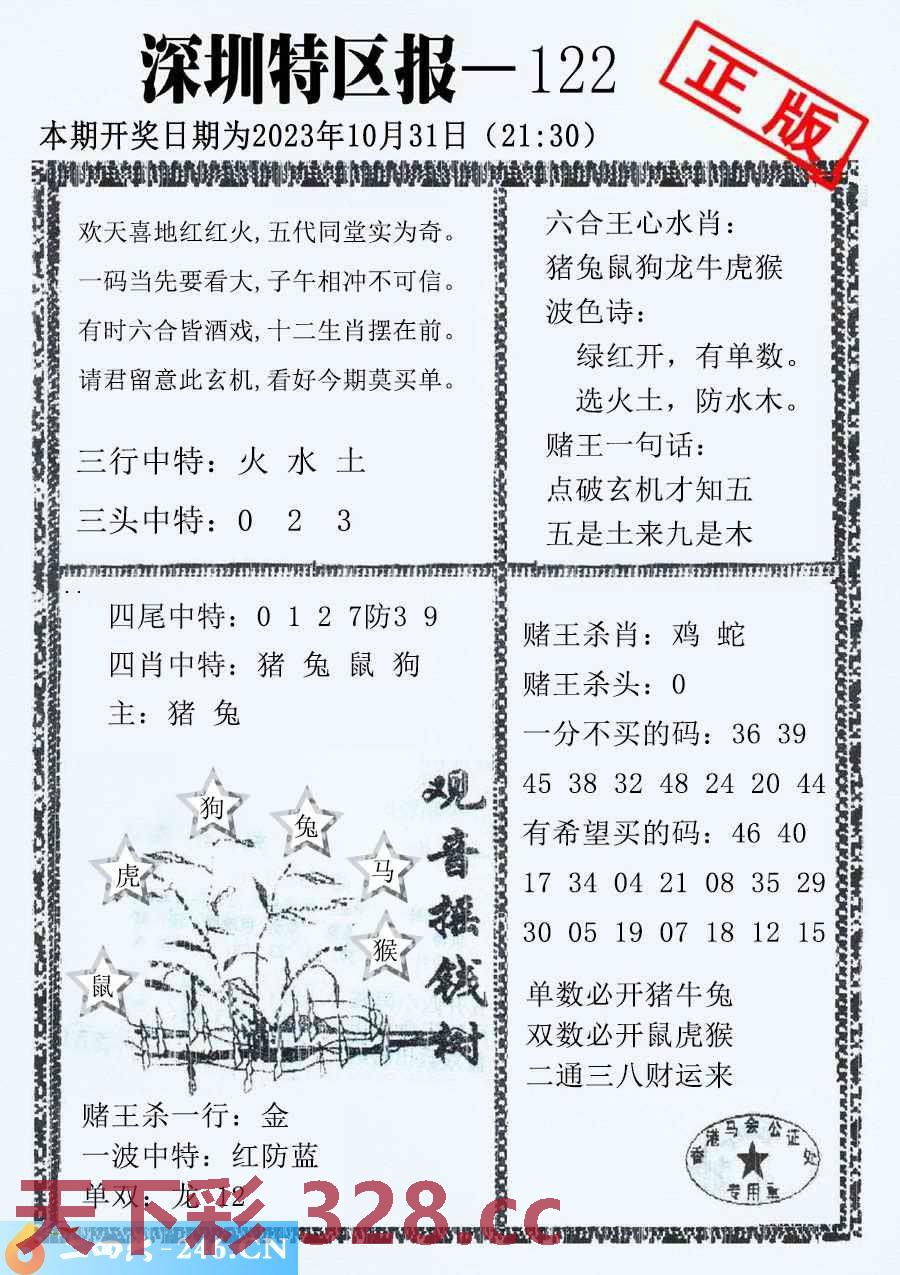 深圳特区报—122
正版
本期开奖日期为2023年10月31日（21:30）
欢天喜地红红火,五代同堂实为奇。
一码当先要看大,子午相冲不可信。
有时六合皆酒戏,十二生肖摆在前。
请君留意此玄机,看好今期莫买单。
三行中特：火 水 土
三头中特：0 2 3
六合王心水肖：
猪兔鼠狗龙牛虎猴
波色诗：
绿红开，有单数。
选火土，防水木。
赌王一句话：
点破玄机才知五
五是土来九是木
四尾中特：0 1 2 7防3 9
四肖中特：猪 兔 鼠 狗
主：猪 兔
狗
兔
虎
马
猴
鼠
观音摇钱树
赌王杀一行：金
一波中特：红防蓝
单双：龙 12
赌王杀肖：鸡 蛇
赌王杀头：0
一分不买的码：36 39
45 38 32 48 24 20 44
有希望买的码：46 40
17 34 04 21 08 35 29
30 05 19 07 18 12 15
单数必开猪牛兔
双数必开鼠虎猴
二通三八财运来
香港马会公证处
专用章
天下彩 328.cc
-246.CN